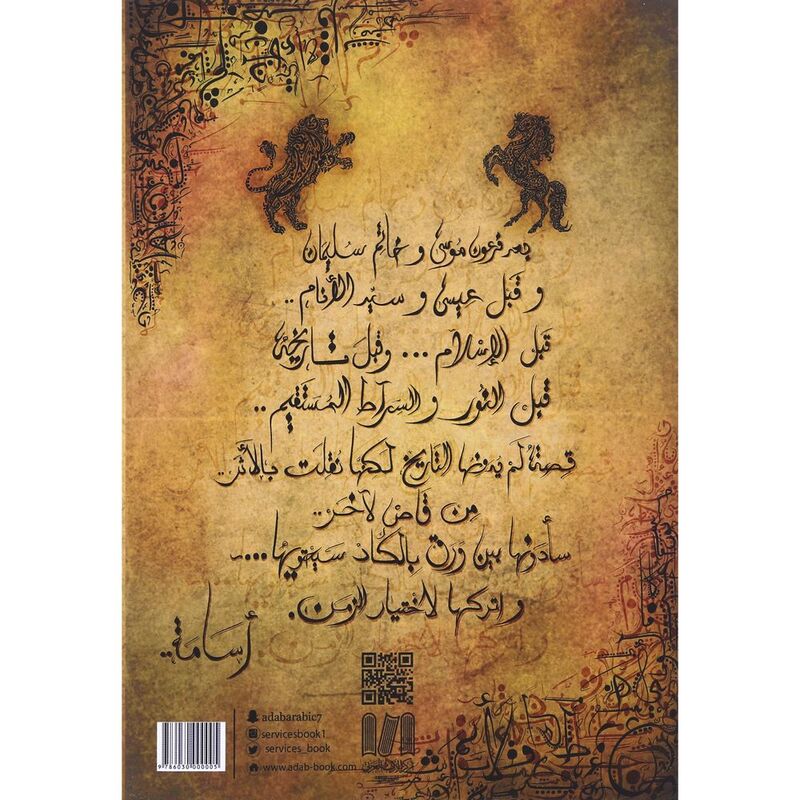 بعد فرعون موسى و خاتم سليمان
و قبل عيسى و سيد الأنام ..
قبل الإسلام ... وقبل تاريخه
قبل النور و السراط المستقيم ..
قصة لم يدونها التاريخ لكنها نقلت بالأثر..
من قاص لآخر..
سأدونها بين ورق بالكاد سيحتويها....
و اتركها لاختيار الزمن.
أسامة..
adabarabic7
servicesbook1
services_book
www.adab-book.com
9 786030 000005